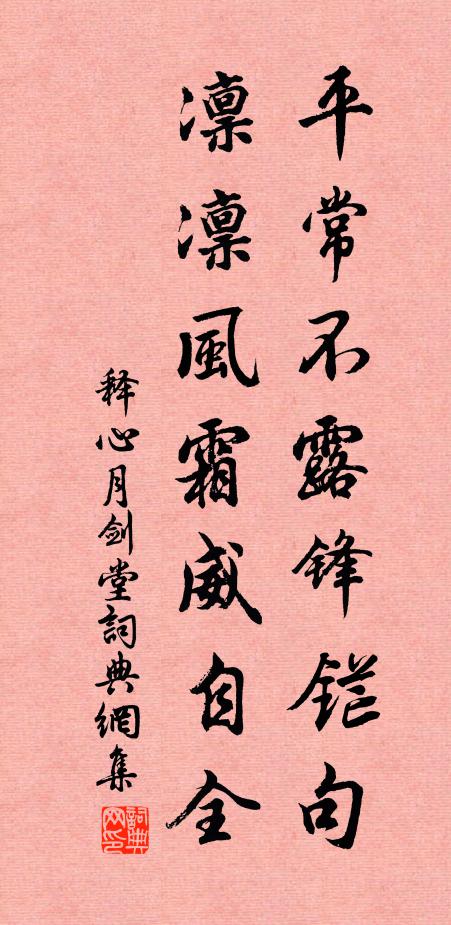 平常不露锋铓句
凛凛風霜威自全
释心月剑堂詞典網集
詞典网印